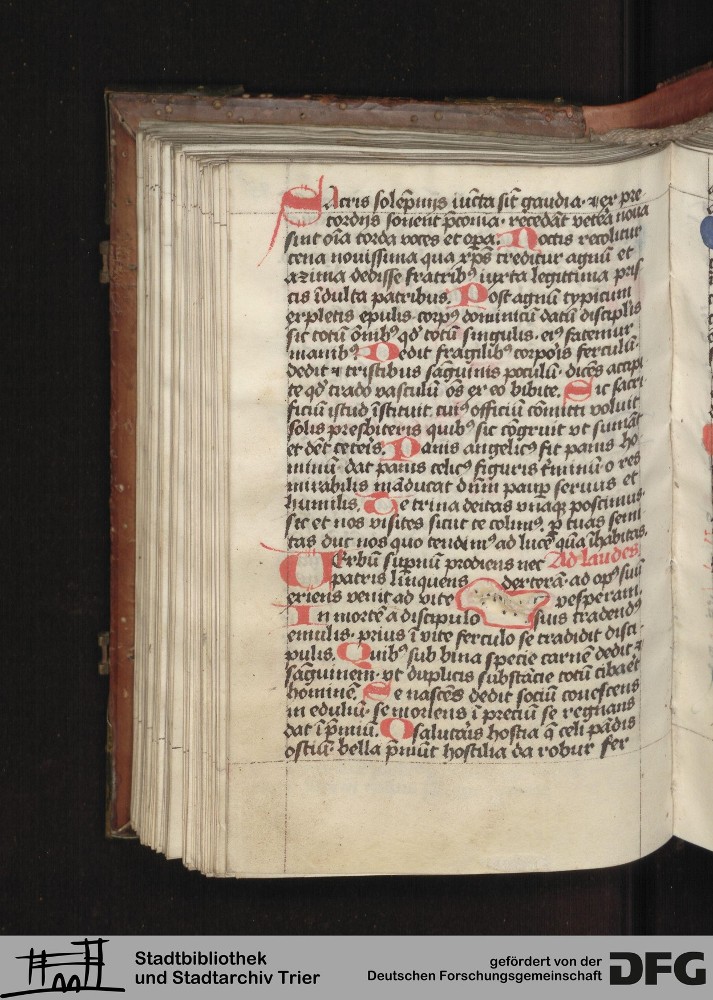 SAcris solēpnijs iūcta sīt gaudia · et ex pre
cordijs sonent p̄conia · recedāt vetera noua
sint oīa corda voces et opa. Noctis recolitur
cena nouissima qua xp̄s creditur agnū et
azima dedisse fratribꝰ iuxta legittima pris
cis īdulta patribus. Post agnū typicum
expletis epulis corpꝰ dominicū datū disciplis
sic totū ōnibꝰ qd' totū singulis · eiꝰ fatemur
manibꝰ. Dedit fragilibꝰ corporis ferculū ·
dedit et tristibus sāguinis poculū · dicēs accipi
te qd' trado vasculū os ex eo bibite. Sic sacri
ficiū istud īstituit. cuiꝰ officiū cōmitti voluit
solis presbiteris quibꝰ sic cōgruit vt sumāt
et dēt ceteis. Panis angelicꝰ fit panis ho
minū · dat panis celicꝰ figuris t'minū o res
mirabilis māducat dnm̄ paup seruus et
humilis. Te trina deitas vnaqꝫ poscimus ·
sic et nos visites sicut te colimꝰ. p tuas semi
tas duc nos quo tendimꝰ ad lucē quā īhabitas.
VErbū supnū prodiens nec Ad laudes.
patris līnquens dexterā · ad opꝰ suū
exiens venit ad vite vesperam.
In mortē a discipulo suis tradendꝰ
emulis · prius ī vite ferculo se tradidit disci
pulis. Quibꝰ sub bina specie carnē dedit et
sāguinem · vt duplicis substācie totū cibaet
hominē. Se nascēs dedit sociū conescens
in eduliū · se moriens ī preciū se regnans
dat ī p̄miū. O salutaris hostia q̄ celi pādis
ostiū · bella p̄mūt hostilia da robur fer
Stadtbibliothek
und Stadtarchiv Trier
gefördert von der
Deutschen Forschungsgemeinschaft
DFG